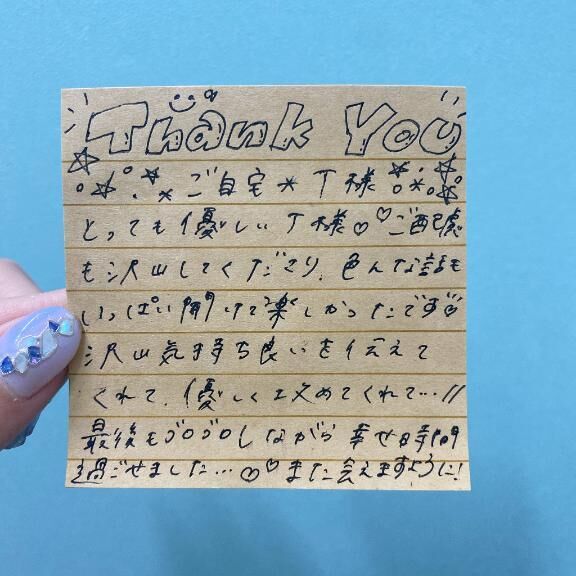 Thank You
ご自宅*T様
とっても優しいT様♡♡ご配慮
も沢山してくださり、色んな話も
いっぱい聞けて楽しかったです♡
沢山気持ち良いを伝えて
くれて、優しく攻めてくれて…//
最後もゴロゴロしながら幸せ時間
過ごせました…♡♡また会えますように!